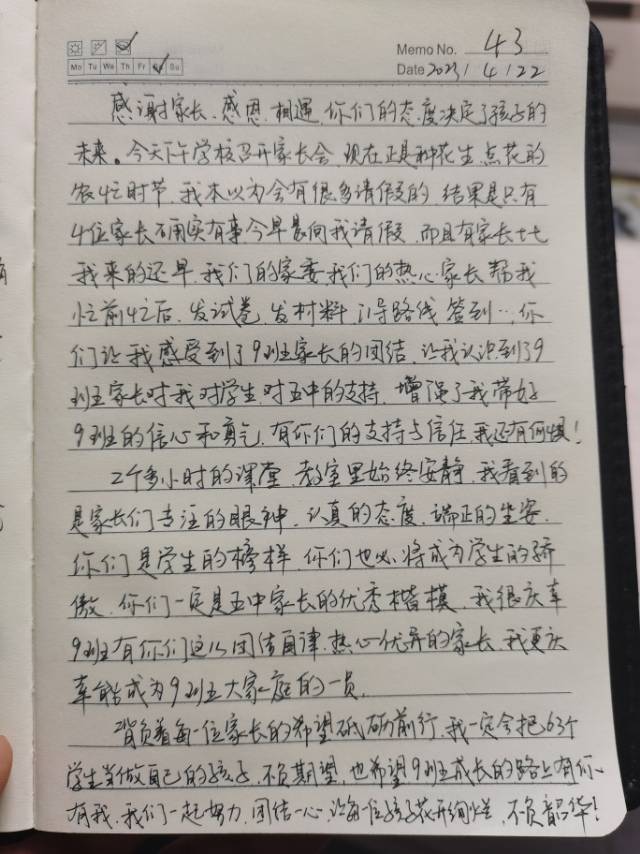 Memo No. 43
Mo Tu We Th Fr Sa Su
Date 2023/4/22
感谢家长、感恩相遇、你们的态度决定了孩子的
未来。今天下午学校召开家长会,现在正是种花生、点花的
农忙时节,我本以为会有很多请假的,结果是只有
4位家长确实有事今早晨向我请假,而且有家长比
我来的还早,我们的家委我们的热心家长帮我
忙前忙后、发试卷、发材料、引导路线、签到…,你
们让我感受到了9班家长的团结,让我认识到了9
班家长对我对学生对五中的支持,增强了我带好
9班的信心和勇气,有你们的支持与信任,我还有何惧!
2个多小时的课堂,教室里始终安静,我看到的
是家长们专注的眼神、认真的态度、端正的坐姿、
你们是学生的榜样,你们也必将成为学生的骄
傲,你们一定是五中家长的优秀楷模,我很庆幸
9班有你们这么团结自律、热心优异的家长,我更庆
幸能成为9班大家庭的一员。
背负着每一位家长的希望砥砺前行,我一定会把63个
学生当做自己的孩子,不负期望,也希望9班成长的路上有你、
有我,我们一起努力,团结一心,让每一位孩子花开绚烂,不负韶华!